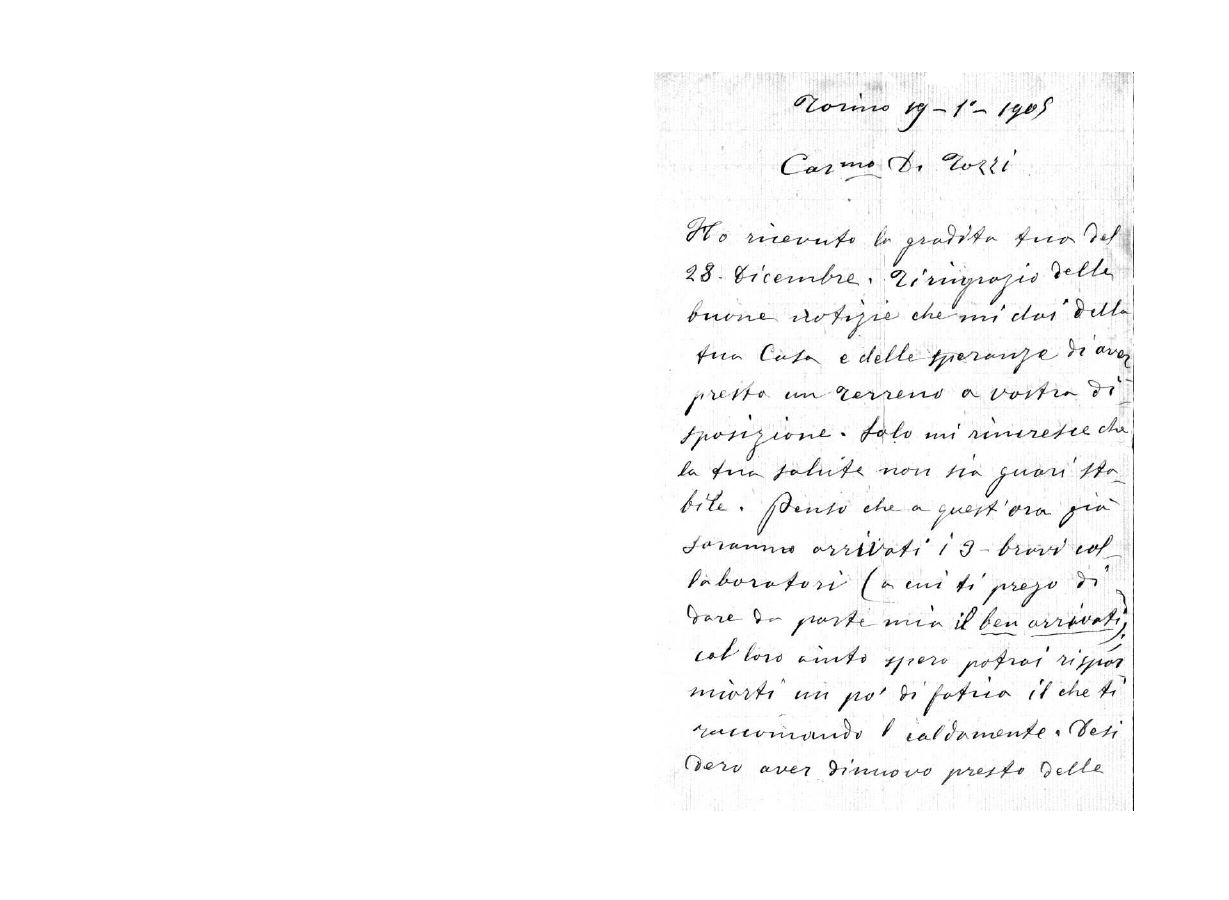 Torino 19 - 1º - 1905
Carmo D. Tozzi
Ho ricevuto la gradita tua del
28. Dicembre. Ti ringrazio delle
buone notizie che mi dai della
tua Casa e delle speranze di aver
presto un terreno a vostra di-
sposizione. Solo mi rincresce che
la tua salute non sia guari sta-
bile. Penso che a quest'ora già
saranno arrivati i 3 - bravi col-
laboratori (a cui ti prego di
dare da parte mia il ben arrivati),
col loro aiuto spero potrai rispar
miarti un po' di fatica il che ti
raccomando caldamente. Desi
dero aver dinuovo presto delle